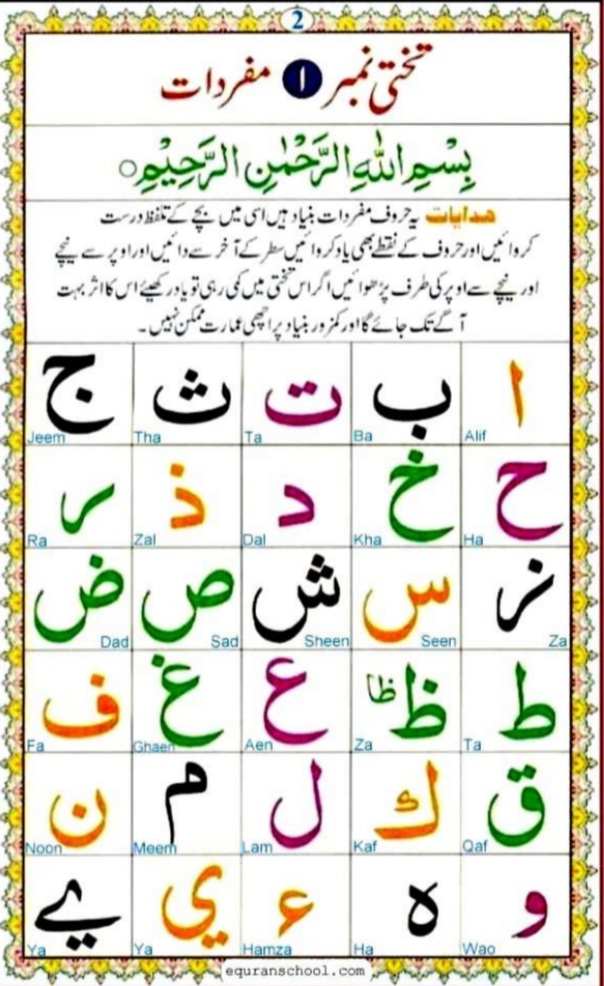 2
تختی نمبر ۱ مفردات
بِسْمِ اللهِ الرَّحْمٰنِ الرَّحِيْمِ
هدایات یہ حروف مفردات بنیاد ہیں اسی میں بچے کے تلفظ درست
کروائیں اور حروف کے نقطے بھی یاد کروائیں سطر کے آخر سے دائیں اور اوپر سے نیچے
اور نیچے سے اوپر کی طرف پڑھوائیں اگر اس تختی میں کمی رہی تو یاد رکھیئے اس کا اثر بہت
آگے تک جائے گا اور کمزور بنیاد پر اچھی عمارت ممکن نہیں۔
ا ب ت ث ج
Alif Ba Ta Tha Jeem
ح خ د ذ ر
Ha Kha Dal Zal Ra
ز س ش ص ض
Za Seen Sheen Sad Dad
ط ظ ظا ع غ ف
Ta Za Aen Ghaen Fa
ق ك ل م ن
Qaf Kaf Lam Meem Noon
و ه ء ي ے
Wao Ha Hamza Ya Ya
equranschool.com